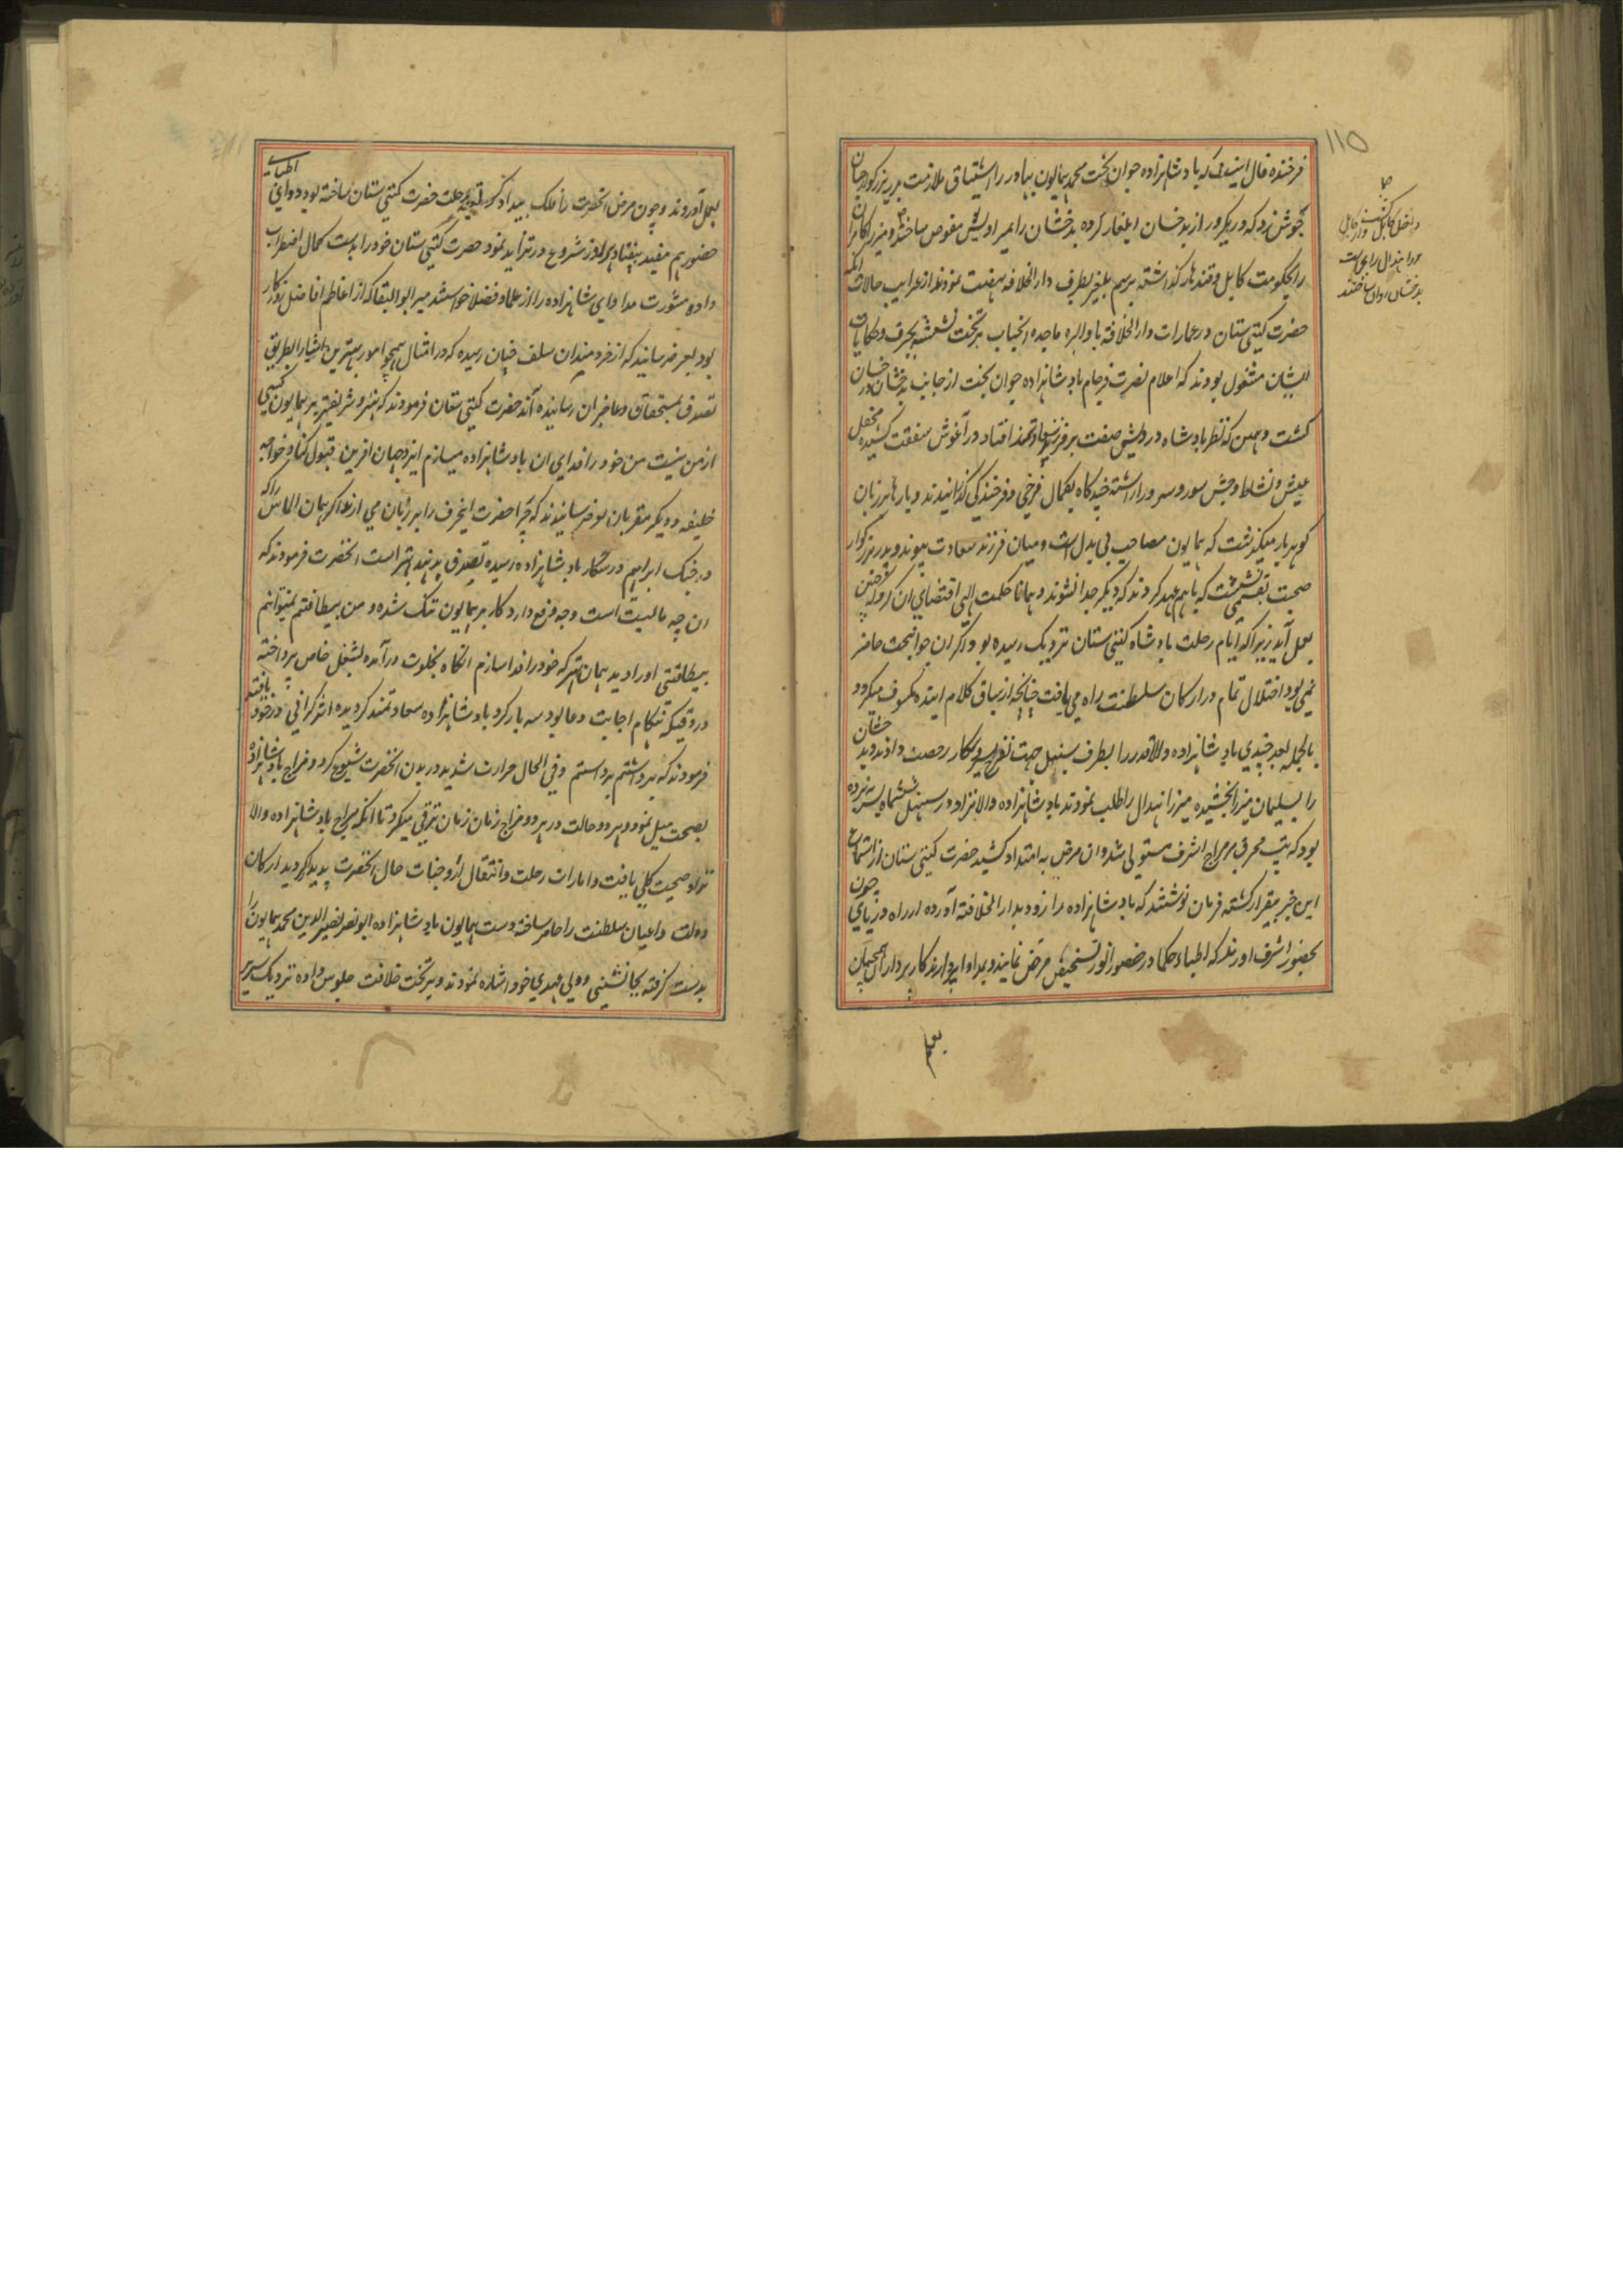 ۱۱۵
فرخنده فال اینست که بادشاهزاده جوان بخت محمد همایون بهادر را اشتیاق ملازمت پدر بزرگوار چنان
بجوش زد که در یکروز از بدخشان ایلغار کرده بدخشان را بمیر اویس مفوض ساختند و میرزا کامران
را بحکومت کابل و قندهار گذاشته برسم بلغر بطرف دار الخلافه نهضت نمودند از غرایب حالات آنکه
حضرت گیتی ستان در عمارات دار الخلافه با والده ماجده انجناب بر تخت نشسته بحرف و حکایات
ایشان مشغول بودند که اعلام نصرت فرجام بادشاهزاده جوان بخت از جانب بدخشان درخشان
گشت و همین که نظر بادشاه درویش صفت بر فرزند سعادتمند افتاد در آغوش شفقت کشیده محفل
عیش و نشاط و جشن سور و سرور اراسته چند گاه بکمال فرخی و فرخندگی گذرانیدند و بارها بر زبان
گوهر بار میگذشت که همایون مصاحب بی بدل است و میان فرزند سعادت پیوند و پدر بزرگوار
صحبت بقسمی نشست که باهم عهد کردند که دیگر جدا نشوند و همانا حکمت الهی اقتضای ان کرد که چنین
بعمل آید زیرا که ایام رحلت بادشاه گیتی ستان نزدیک رسیده بود و اگر ان جوانبخت حاضر
نمی بود اختلال تمام در ارکان سلطنت راه می یافت چنانچه از سیاق کلام اینده مکشوف میگردد
بالجمله بعد چندی بادشاهزاده والاقدر را بطرف سنبهل جهت تفرج و سیر و شکار رخصت دادند و بدخشان
را بسلیمان میرزا بخشیده میرزا هندال را طلب نمودند بادشاهزاده والانژاد در سنبهل ششماه بسر برده
بود که تب محرق بر مزاج اشرف مستولی شد و ان مرض به امتداد کشید حضرت گیتی ستان از استماع
این خبر بیقرار گشته فرمان نوشتند که بادشاهزاده را زود بدار الخلافته آورده از راه دریای چون
بحضور اشرف اورند که اطباء و حکما در حضور انور تشخیص مرض نمایند و بمداوا پردازند کار پردازان همچنان
بعمل
بعمل آوردند و چون مرض انحضرت را فلک بیدادگر تدبیر رحلت حضرت گیتی ستان ساخته بود دوای اطبای
حضور هم مفید نیفتاد و هر روز شروع در تزاید نمود حضرت گیتی ستان خود را بدست کمال اضطراب
داده مشورت مداوای شاهزاده را از علما و فضلا خواستند میر ابو البقا که از اعاظم افاضل روزگار
بود بعرض رسانید که از خردمندان سلف چنان رسیده که در امثال همچو امور بهترین اشیا را بطریق
تصدق بمستحقان و عاجزان رسانیده آند حضرت گیتی ستان فرمودند که بهتر و شریفتر بر همایون کسی
از من نیست من خود را فدای ان بادشاهزاده میسازم ایزد جهان افرین قبول کناد خواجه
خلیفه و دیگر مقربان بعرض رسانیدند که چرا حضرت اینحرف را بر زبان می ارند اگر همان الماس را که
در جنگ ابراهیم در سرکار بادشاهزاده رسیده تصدق بدهند بهتر است انحضرت فرمودند که
ان چه مالیت است وجه فزع دارد کار بر همایون تنگ شده و من بیطاقتم نمیتوانم
بیطاقتی او را دید همان بهتر که خود را فدا سازم انگاه بخلوت درآمده بشغل خاص پرداخته
در وقتیکه هنگام اجابت دعا بود سه بار گرد بادشاهزاده سعادتمند گردیده اثر گرانی در خود یافته
فرمودند که برداشتم برداشتم و فی الحال حرارت شدید در بدن انحضرت شیوع کرد و مزاج بادشاهزاده
بصحت میل نمود و هر دو حالت در هر دو مزاج زمان زمان ترقی میکرد تا انکه مزاج بادشاهزاده والا
نژاد صحت کلی یافت و امارات رحلت و انتقال از وجنات حال انحضرت پدیدار گردید ارکان
دولت و اعیان سلطنت را حاضر ساخته دست همایون بادشاهزاده ابو نصر نصیر الدین محمد همایون را
بدست گرفته بجانشینی و ولی عهدی خود اشاره نمودند و بر تخت خلافت جلوس داده نزدیک سریر